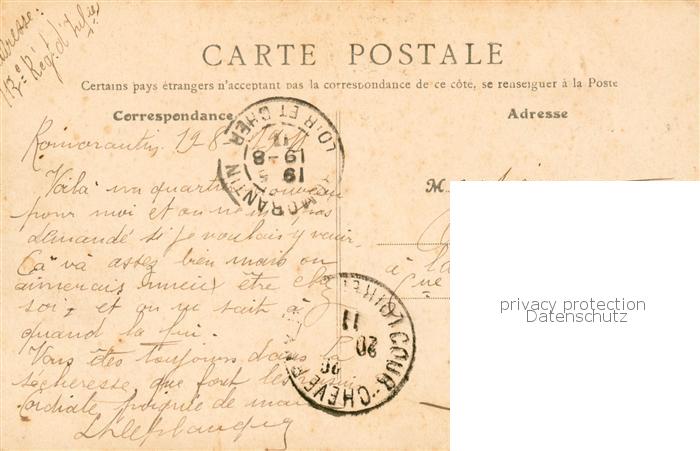 Adresse:
113e Régt d'Infie
CARTE POSTALE
Certains pays étrangers n'acceptant pas la correspondance de ce côté, se renseigner à la Poste
Correspondance
Adresse
Romorantin 19-8-1911
LOIR ET CHER
19
19-8
11
MORANTIN
Voilà un quartier nouveau
pour moi et on ne m'a pas
demandé si je voulais y venir.
Ça va assez bien mais on
aimerais mieux être chez
soi, et on ne sait à
quand la fin.
Vous êtes toujours dans la
sécheresse, que font les
Cordiale poignée de main
M
à la
Cne
COUR-CHEVER
20
11
privacy protection
Datenschutz